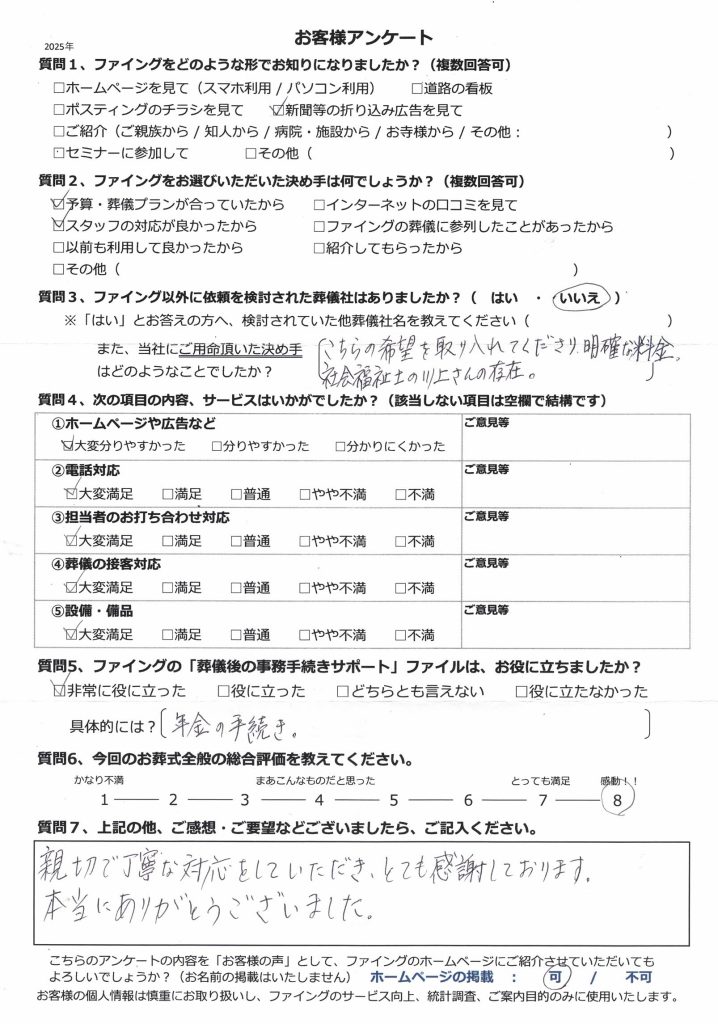 お客様アンケート
2025年
質問１、ファイングをどのような形でお知りになりましたか？（複数回答可）
□ホームページを見て（スマホ利用 / パソコン利用） □道路の看板
□ポスティングのチラシを見て ☑新聞等の折り込み広告を見て
□ご紹介（ご親族から / 知人から / 病院・施設から / お寺様から / その他： ）
□セミナーに参加して □その他（ ）
質問２、ファイングをお選びいただいた決め手は何でしょうか？（複数回答可）
☑予算・葬儀プランが合っていたから □インターネットの口コミを見て
☑スタッフの対応が良かったから □ファイングの葬儀に参列したことがあったから
□以前も利用して良かったから □紹介してもらったから
□その他（ ）
質問３、ファイング以外に依頼を検討された葬儀社はありましたか？（ はい ・ いいえ ）
※「はい」とお答えの方へ、検討されていた他葬儀社名を教えてください（ ）
また、当社にご用命頂いた決め手
はどのようなことでしたか？
こちらの希望を取り入れてくださり、明確な料金。
社会福祉士の川上さんの存在。
質問４、次の項目の内容、サービスはいかがでしたか？（該当しない項目は空欄で結構です）
①ホームページや広告など ご意見等
☑大変分りやすかった □分りやすかった □分かりにくかった
②電話対応 ご意見等
☑大変満足 □満足 □普通 □やや不満 □不満
③担当者のお打ち合わせ対応 ご意見等
☑大変満足 □満足 □普通 □やや不満 □不満
④葬儀の接客対応 ご意見等
☑大変満足 □満足 □普通 □やや不満 □不満
⑤設備・備品 ご意見等
☑大変満足 □満足 □普通 □やや不満 □不満
質問5、ファイングの「葬儀後の事務手続きサポート」ファイルは、お役に立ちましたか？
☑非常に役に立った □役に立った □どちらとも言えない □役に立たなかった
具体的には？ 年金の手続き。
質問6、今回のお葬式全般の総合評価を教えてください。
かなり不満 まあこんなものだと思った とっても満足 感動！！
1 ─── 2 ─── 3 ─── 4 ─── 5 ─── 6 ─── 7 ─── 8
質問７、上記の他、ご感想・ご要望などございましたら、ご記入ください。
親切で丁寧な対応をしていただき、とても感謝しております。
本当にありがとうございました。
こちらのアンケートの内容を「お客様の声」として、ファイングのホームページにご紹介させていただいても
よろしいでしょうか？（お名前の掲載はいたしません） ホームページの掲載 ： 可 / 不可
お客様の個人情報は慎重にお取り扱いし、ファイングのサービス向上、統計調査、ご案内目的のみに使用いたします。